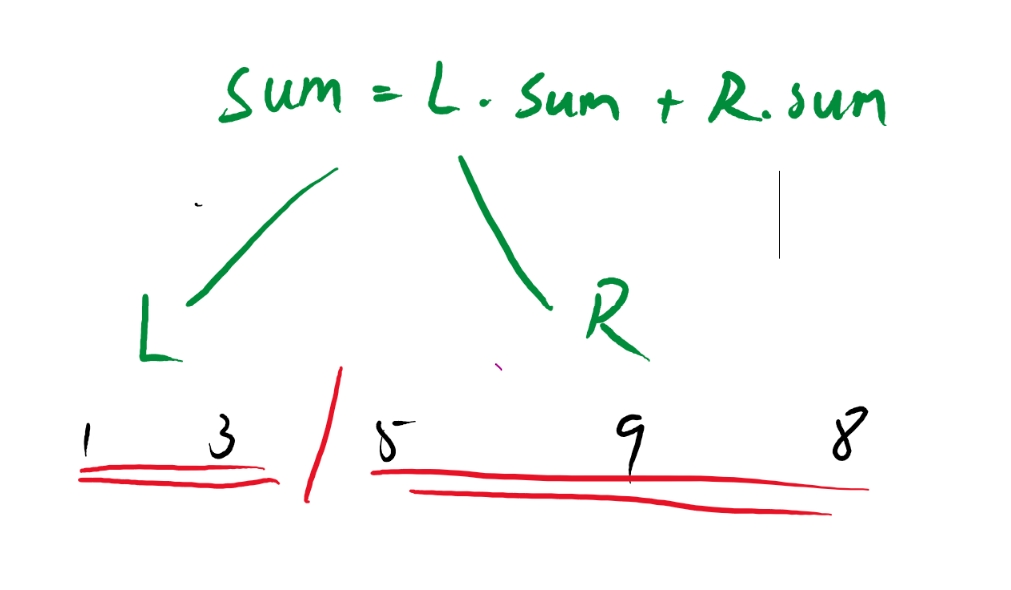 Sum = L . Sum + R . sum
L R
1 3 / 5 9 8